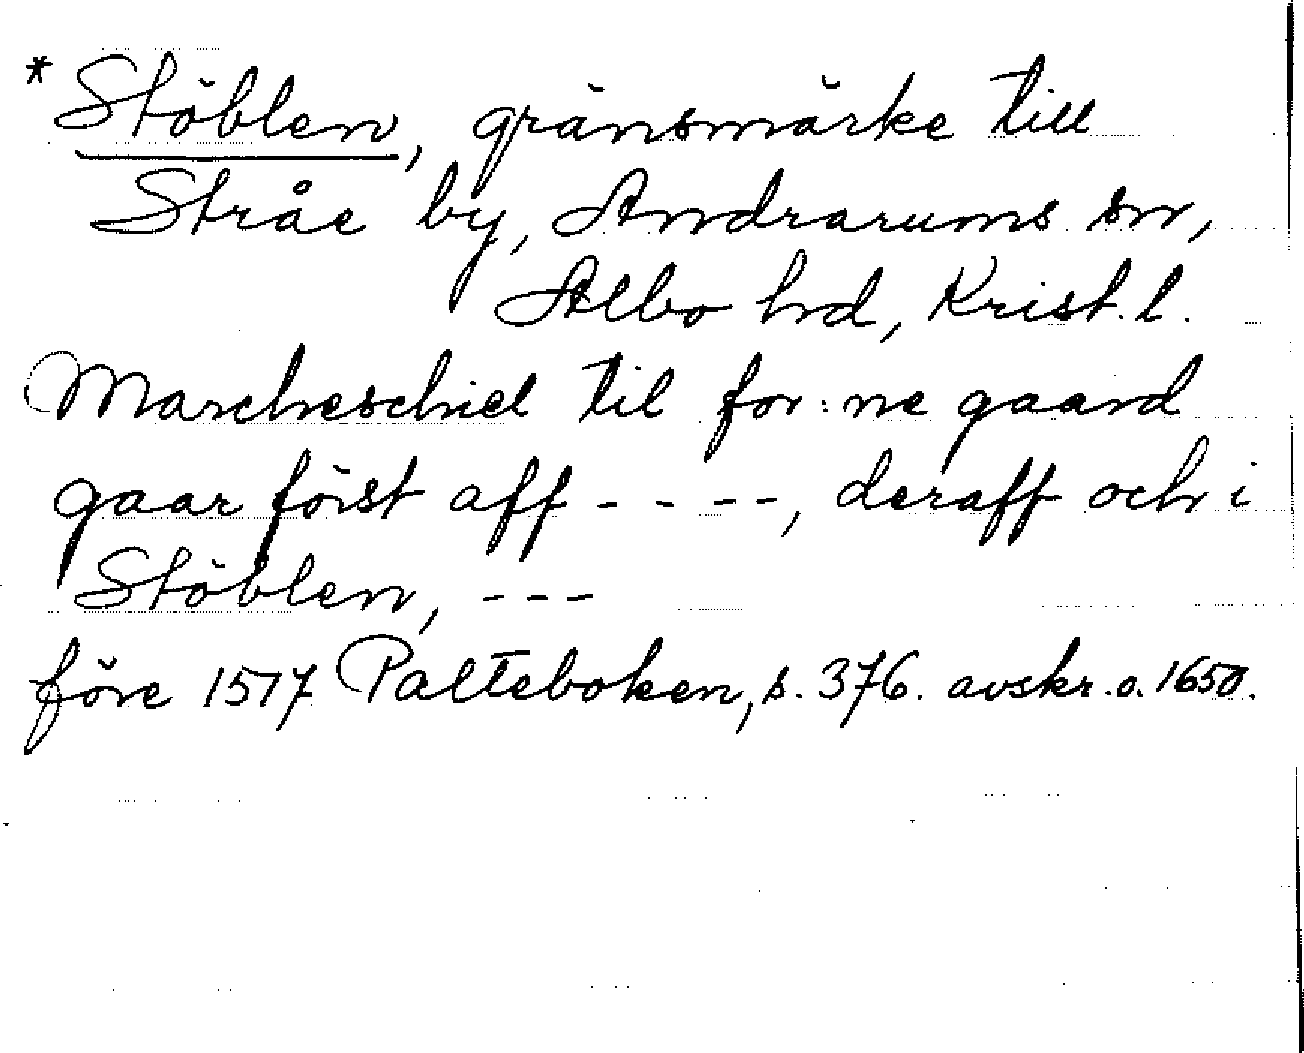 * Stöblen, gränsmärke till
Stråe by, Andrarums sn,
Albo hd, Krist. l.
Marcheschiel til for:ne gaard
gaar först aff - - - -, deraff och i
Stöblen, - - -
före 1517 Palteboken, s. 376. avskr. o. 1650.